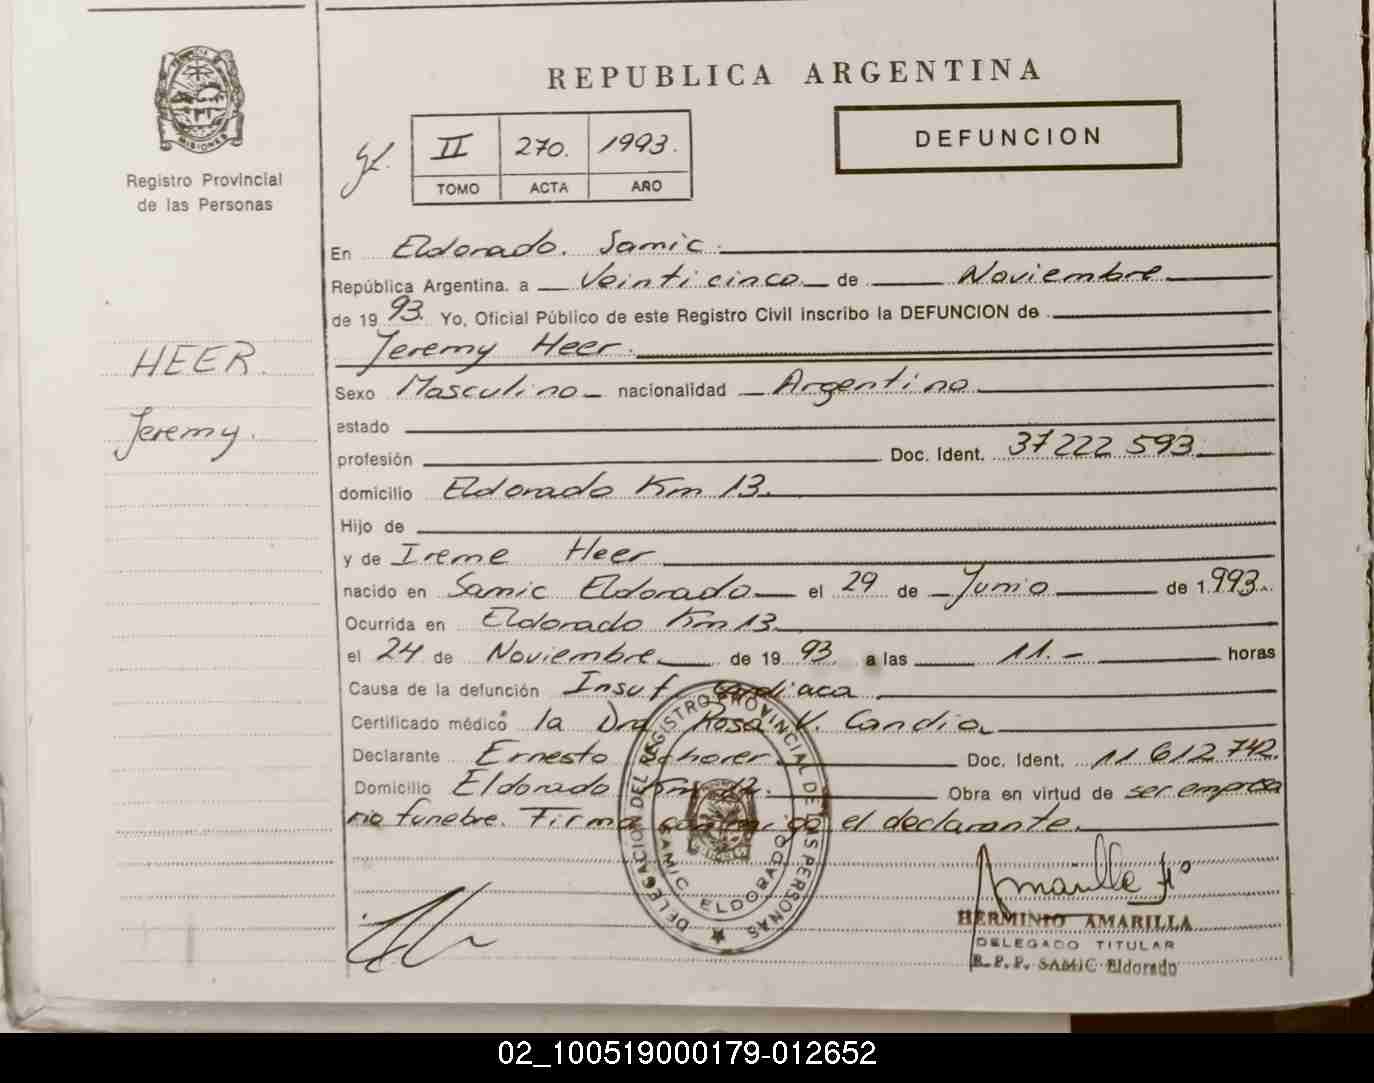 REPUBLICA ARGENTINA
MISIONES
Registro Provincial
de las Personas
II 270. 1993.
TOMO ACTA AÑO
DEFUNCION
HEER.
Jeremy.
En Eldorado. Samic.
República Argentina. a Veinticinco de Noviembre
de 1993. Yo, Oficial Público de este Registro Civil inscribo la DEFUNCION de
Jeremy Heer.
Sexo Masculino nacionalidad Argentino
estado
profesión Doc. Ident. 37 222 593
domicilio Eldorado Km 13.
Hijo de
y de Ireme Heer
nacido en Samic Eldorado el 29 de Junio de 1.993.
Ocurrida en Eldorado Km 13.
el 24 de Noviembre de 1993. a las 11.- horas
Causa de la defunción Insuf. cardiaca
Certificado médico la Dra Rosa V. Candia
Declarante Ernesto Scherer Doc. Ident. 11 612 742.
Domicilio Eldorado Km Obra en virtud de ser empresa
rio funebre. Firma conmigo el declarante.
DELEGACION DEL REGISTRO PROVINCIAL DE LAS PERSONAS
SAMIC ELDORADO
Amarilla Hº
HERMINIO AMARILLA
DELEGADO TITULAR
R.P.P. SAMIC Eldorado
02_100519000179-012652